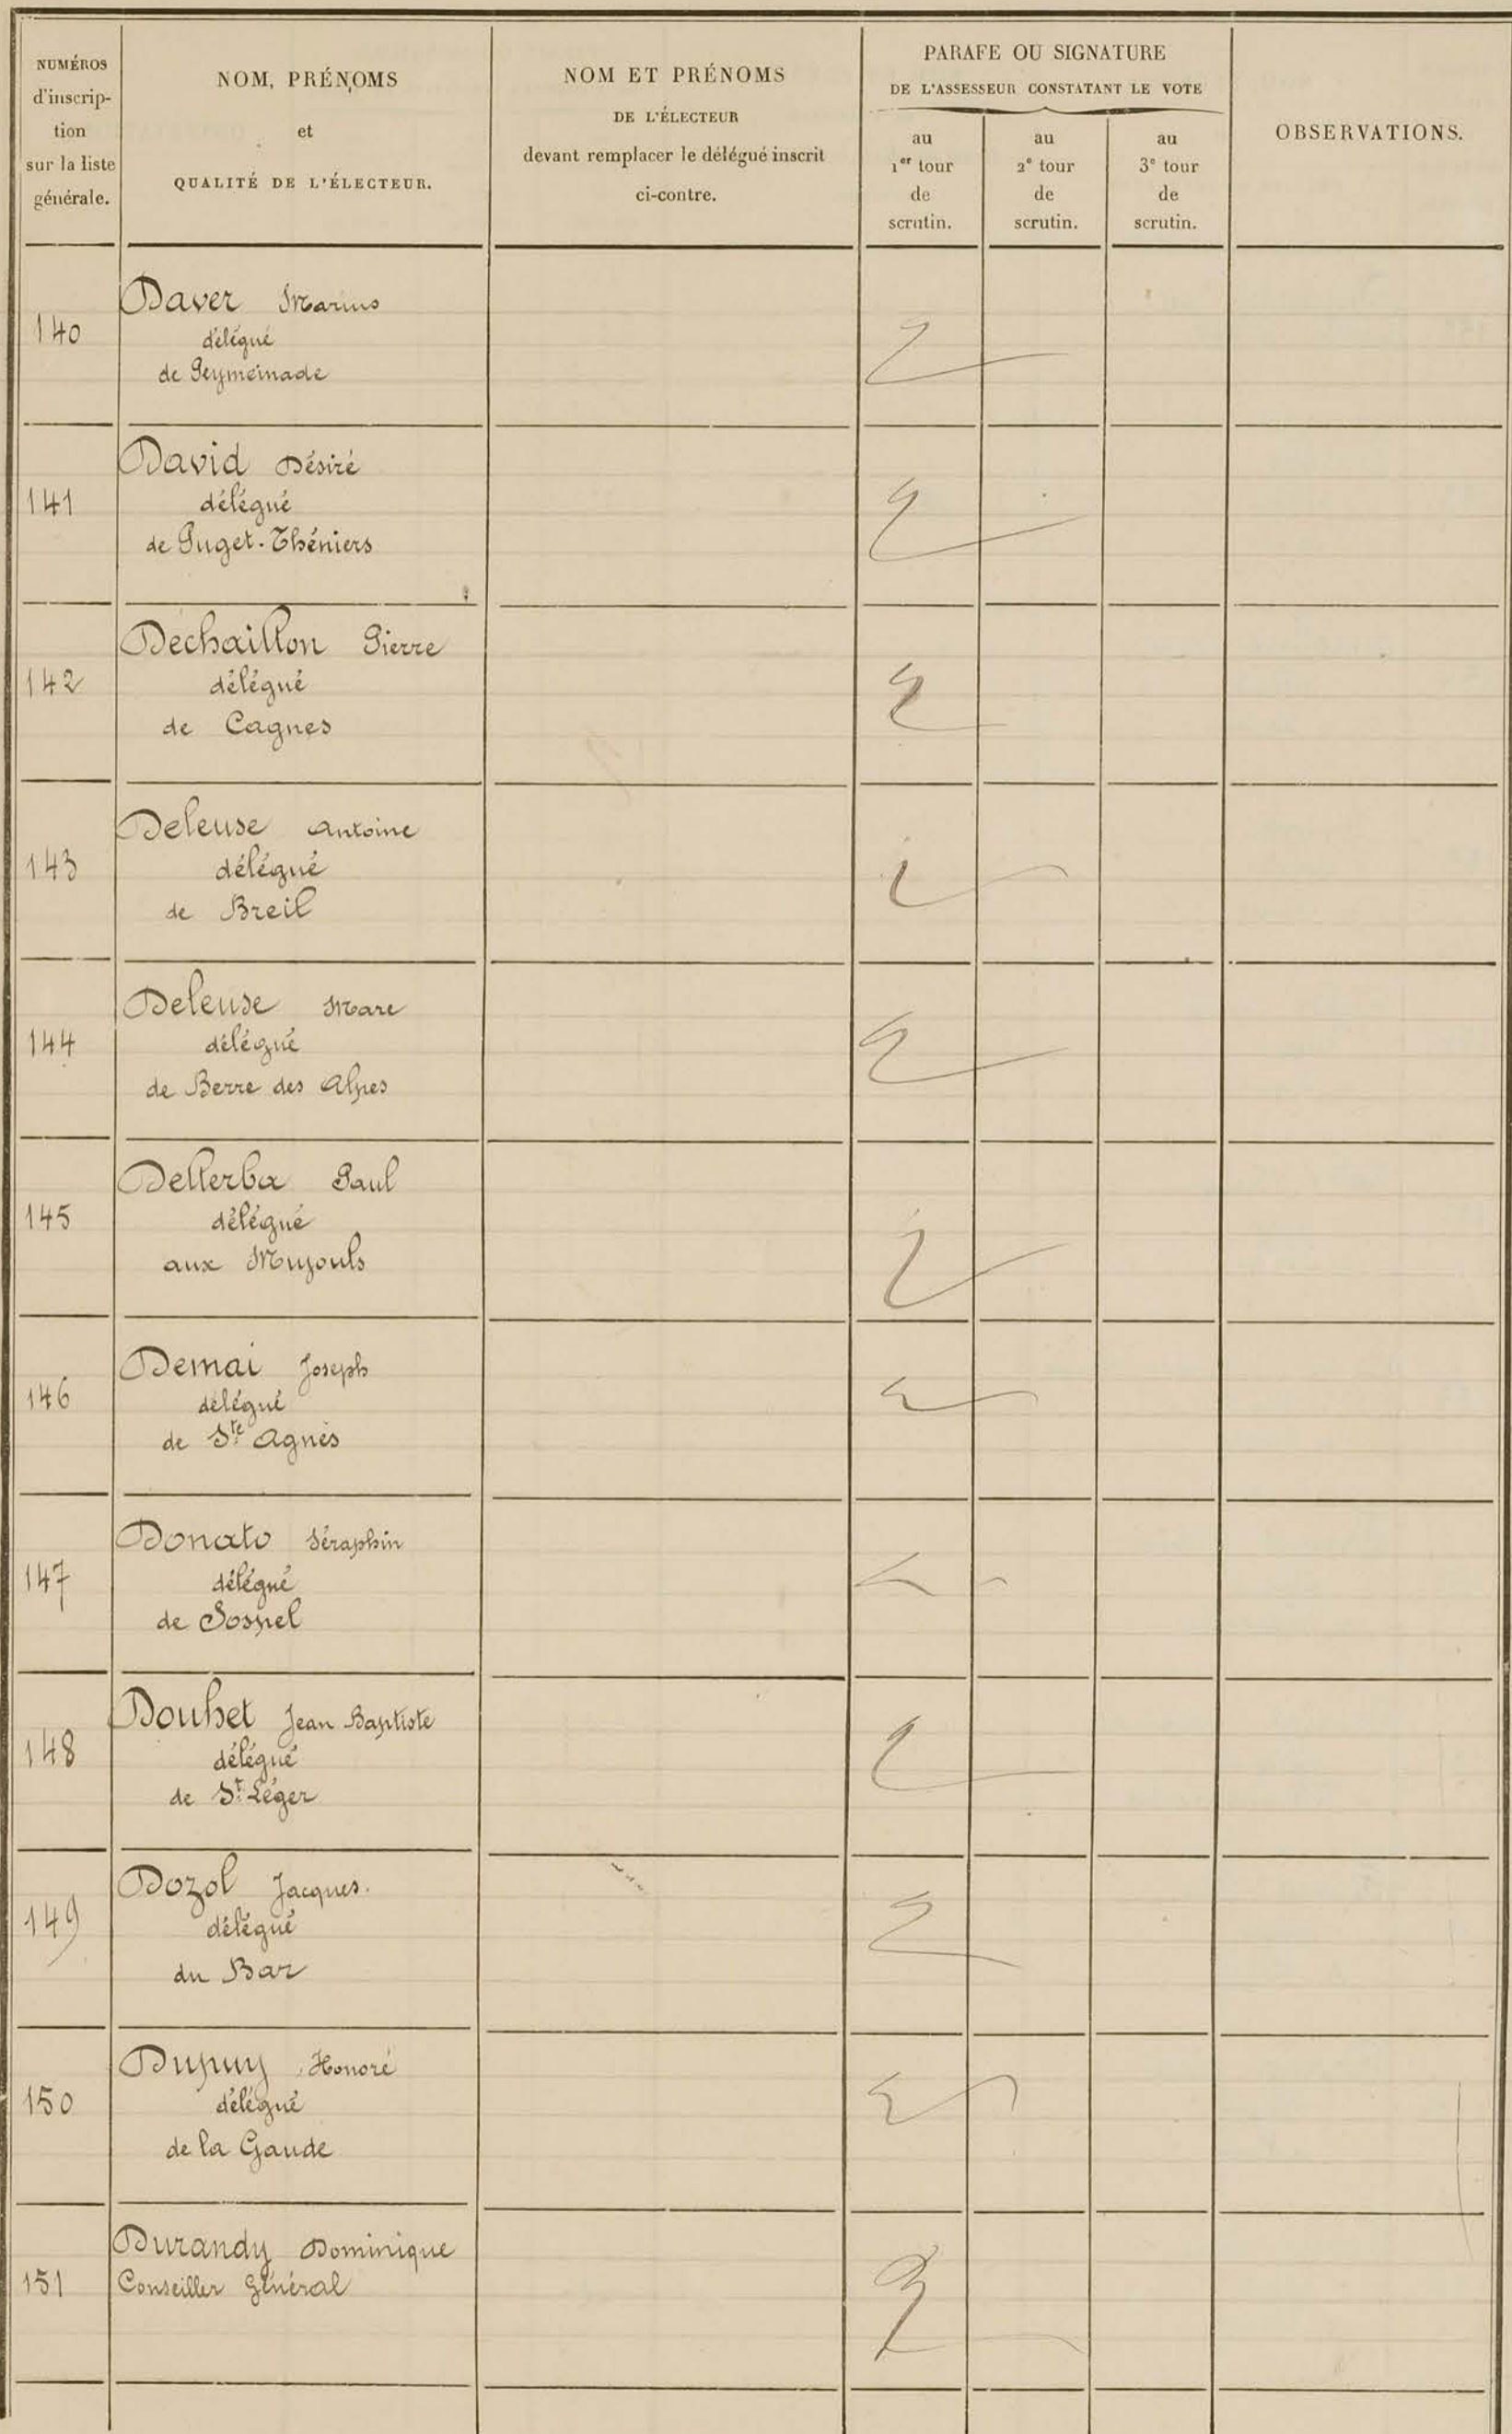 NUMÉROS
d'inscrip-
tion
sur la liste
générale.
NOM, PRÉNOMS
et
QUALITÉ DE L'ÉLECTEUR.
NOM ET PRÉNOMS
DE L'ÉLECTEUR
devant remplacer le délégué inscrit
ci-contre.
PARAFE OU SIGNATURE
DE L'ASSESSEUR CONSTATANT LE VOTE
au
1er tour
de
scrutin.
au
2e tour
de
scrutin.
au
3e tour
de
scrutin.
OBSERVATIONS.
140
Daver Marius
délégué
de Peymeinade
141
David Désiré
délégué
de Puget-Théniers
142
Dechaillon Pierre
délégué
de Cagnes
143
Deleuse Antoine
délégué
de Breil
144
Deleuse Marc
délégué
de Berre des Alpes
145
Dellerba Paul
délégué
aux Mujouls
146
Demai Joseph
délégué
de Ste Agnès
147
Donato Séraphin
délégué
de Sospel
148
Douhet Jean Baptiste
délégué
de St Léger
149
Dozol Jacques.
délégué
du Bar
150
Dupuy Honoré
délégué
de la Gaude
151
Durandy Dominique
Conseiller Général